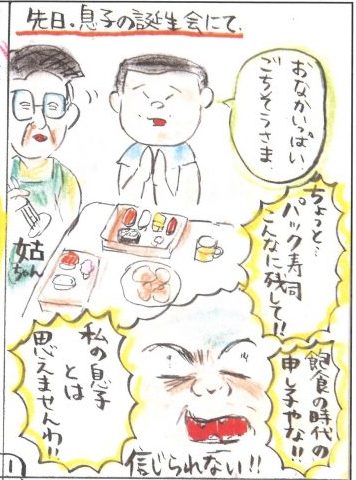 先日。息子の誕生会にて.
おなかいっぱい
ごちそうさま
ちょっと…
パック寿司
こんなに残して!!
姑
ちゃん
飽食の時代の
申し子やな!!
私の息子
とは
思えませんわ!!
信じられない!!
1